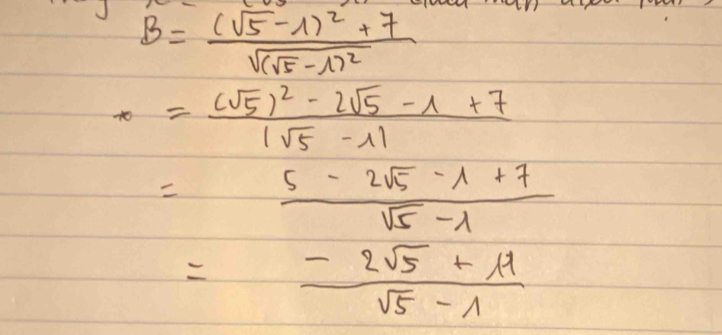 B = ((√5 - 1)² + 7) / √((√5 - 1)²)
* = ((√5)² - 2√5 - 1 + 7) / |√5 - 1|
= (5 - 2√5 - 1 + 7) / (√5 - 1)
= (- 2√5 + 11) / (√5 - 1)